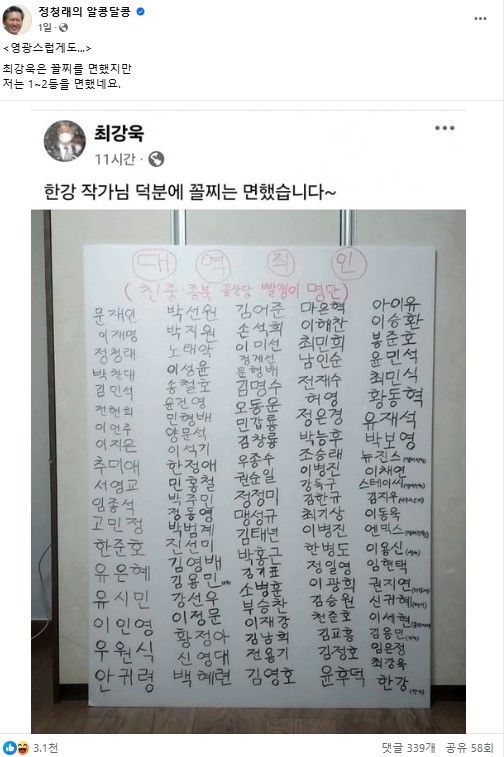 정청래의 알콩달콩
1일 ·
<영광스럽게도...>
최강욱은 꼴찌를 면했지만
저는 1~2등을 면했네요.
최강욱
11시간 ·
한강 작가님 덕분에 꼴찌는 면했습니다~
대 역 죄 인
(친중·종북 공산당 빨갱이 명단)
문재인
이재명
정청래
박찬대
김민석
전현희
이언주
이지은
추미애
서영교
임종석
고민정
한준호
유은혜
유시민
이인영
우원식
안귀령
박선원
박지원
노태악
이성윤
송철호
윤건영
민형배
양문석
이석기
한정애
민홍철
박주민
정동영
박범계
진선미
김영배
김용민
강선우
이정문
황정아
신영대
백혜련
김어준
손석희
이미선
정계선
문형배
김명수
오동운
민갑룡
김창룡
우종수
권순일
정정미
맹성규
김태년
박홍근
정기표
소병훈
부승찬
이재강
김남희
전용기
김영호
마은혁
이해찬
최민희
남인순
전재수
허영
정은경
박능후
조승래
이병진
강득구
김한규
최기상
이병진
한병도
정일영
이광희
김승원
천준호
김교흥
김정호
윤후덕
아이유
이승환
봉준호
윤민석
최민식
황동혁
유재석
박보영
뉴진스
이채연
스테이씨
김지우
이동욱
엔믹스
이용신
임현택
권지연
신귀혜
이세현
김용민
임은정
최강욱
한강
3.1천
댓글 339개 공유 58회